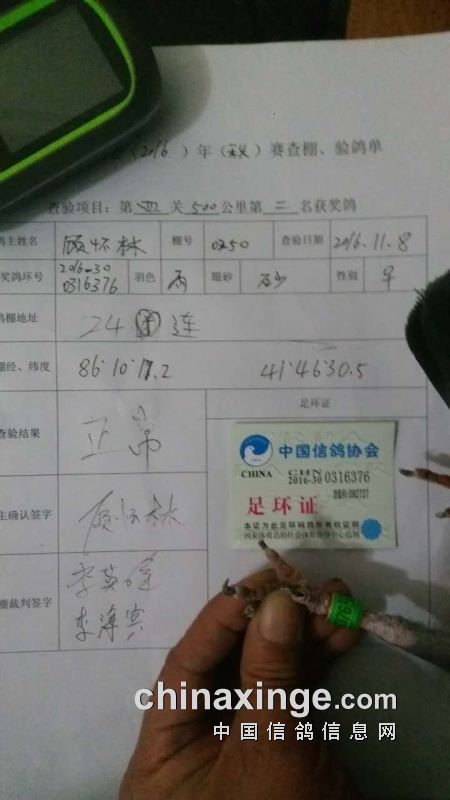 (2016)年(秋)赛查棚、验鸽单
查验项目：第四关500公里第二名获奖鸽
鸽主姓名 顾怀林 棚号 0250 查验日期 2016.11.8
奖鸽环号 2016-30 0316376 羽色 雨 眼砂 砂 性别 早
鸽棚地址 24团连
棚经、纬度 86°10'17.2 41°46'30.5
查验结果 正常 足环证
中国信鸽协会
CHINA CHN
2016-30 0316376
足环证
本证为此足环鸽所有权证明
国家体育总局社会体育指导中心监制
主确认签字 顾怀林
棚裁判签字 李英
李海宾
chinaxinge.com
中国信鸽信息网